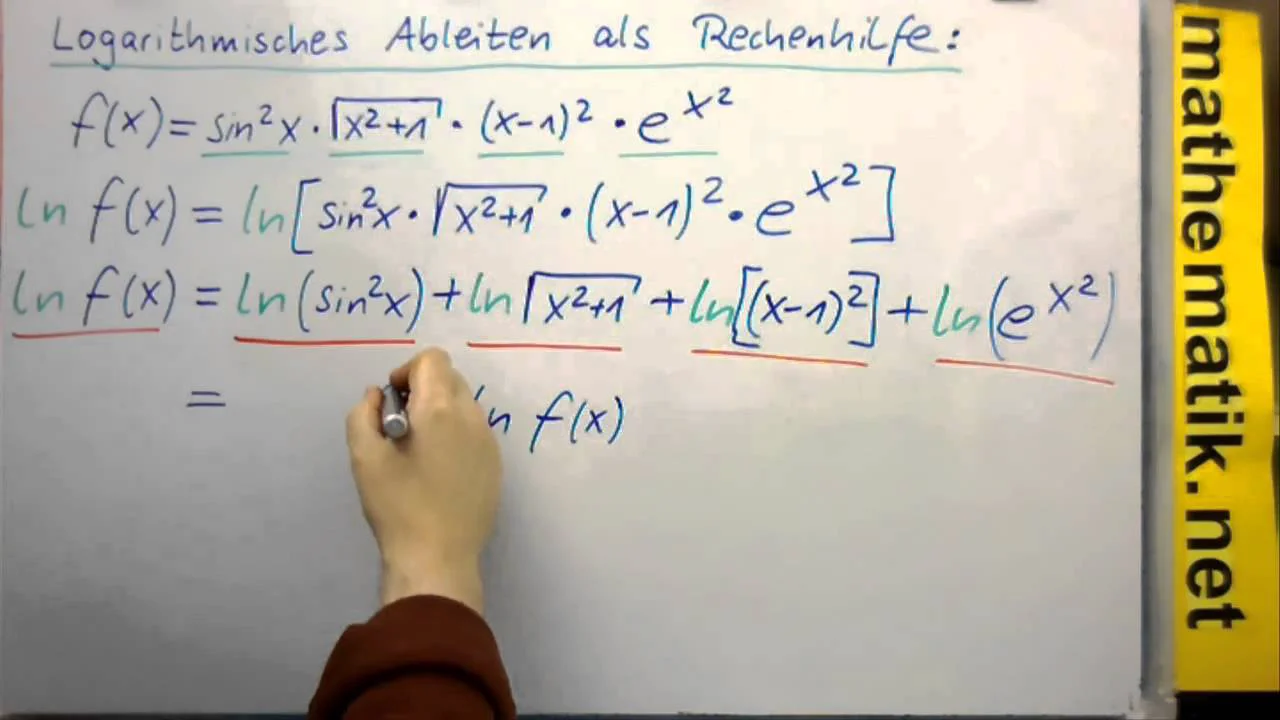 Logarithmisches Ableiten als Rechenhilfe:
f(x) = sin²x · √(x²+1) · (x-1)² · e^(x²)
ln f(x) = ln[sin²x · √(x²+1) · (x-1)² · e^(x²)]
ln f(x) = ln(sin²x) + ln√(x²+1) + ln[(x-1)²] + ln(e^(x²))
= ln f(x)
mathematik.net